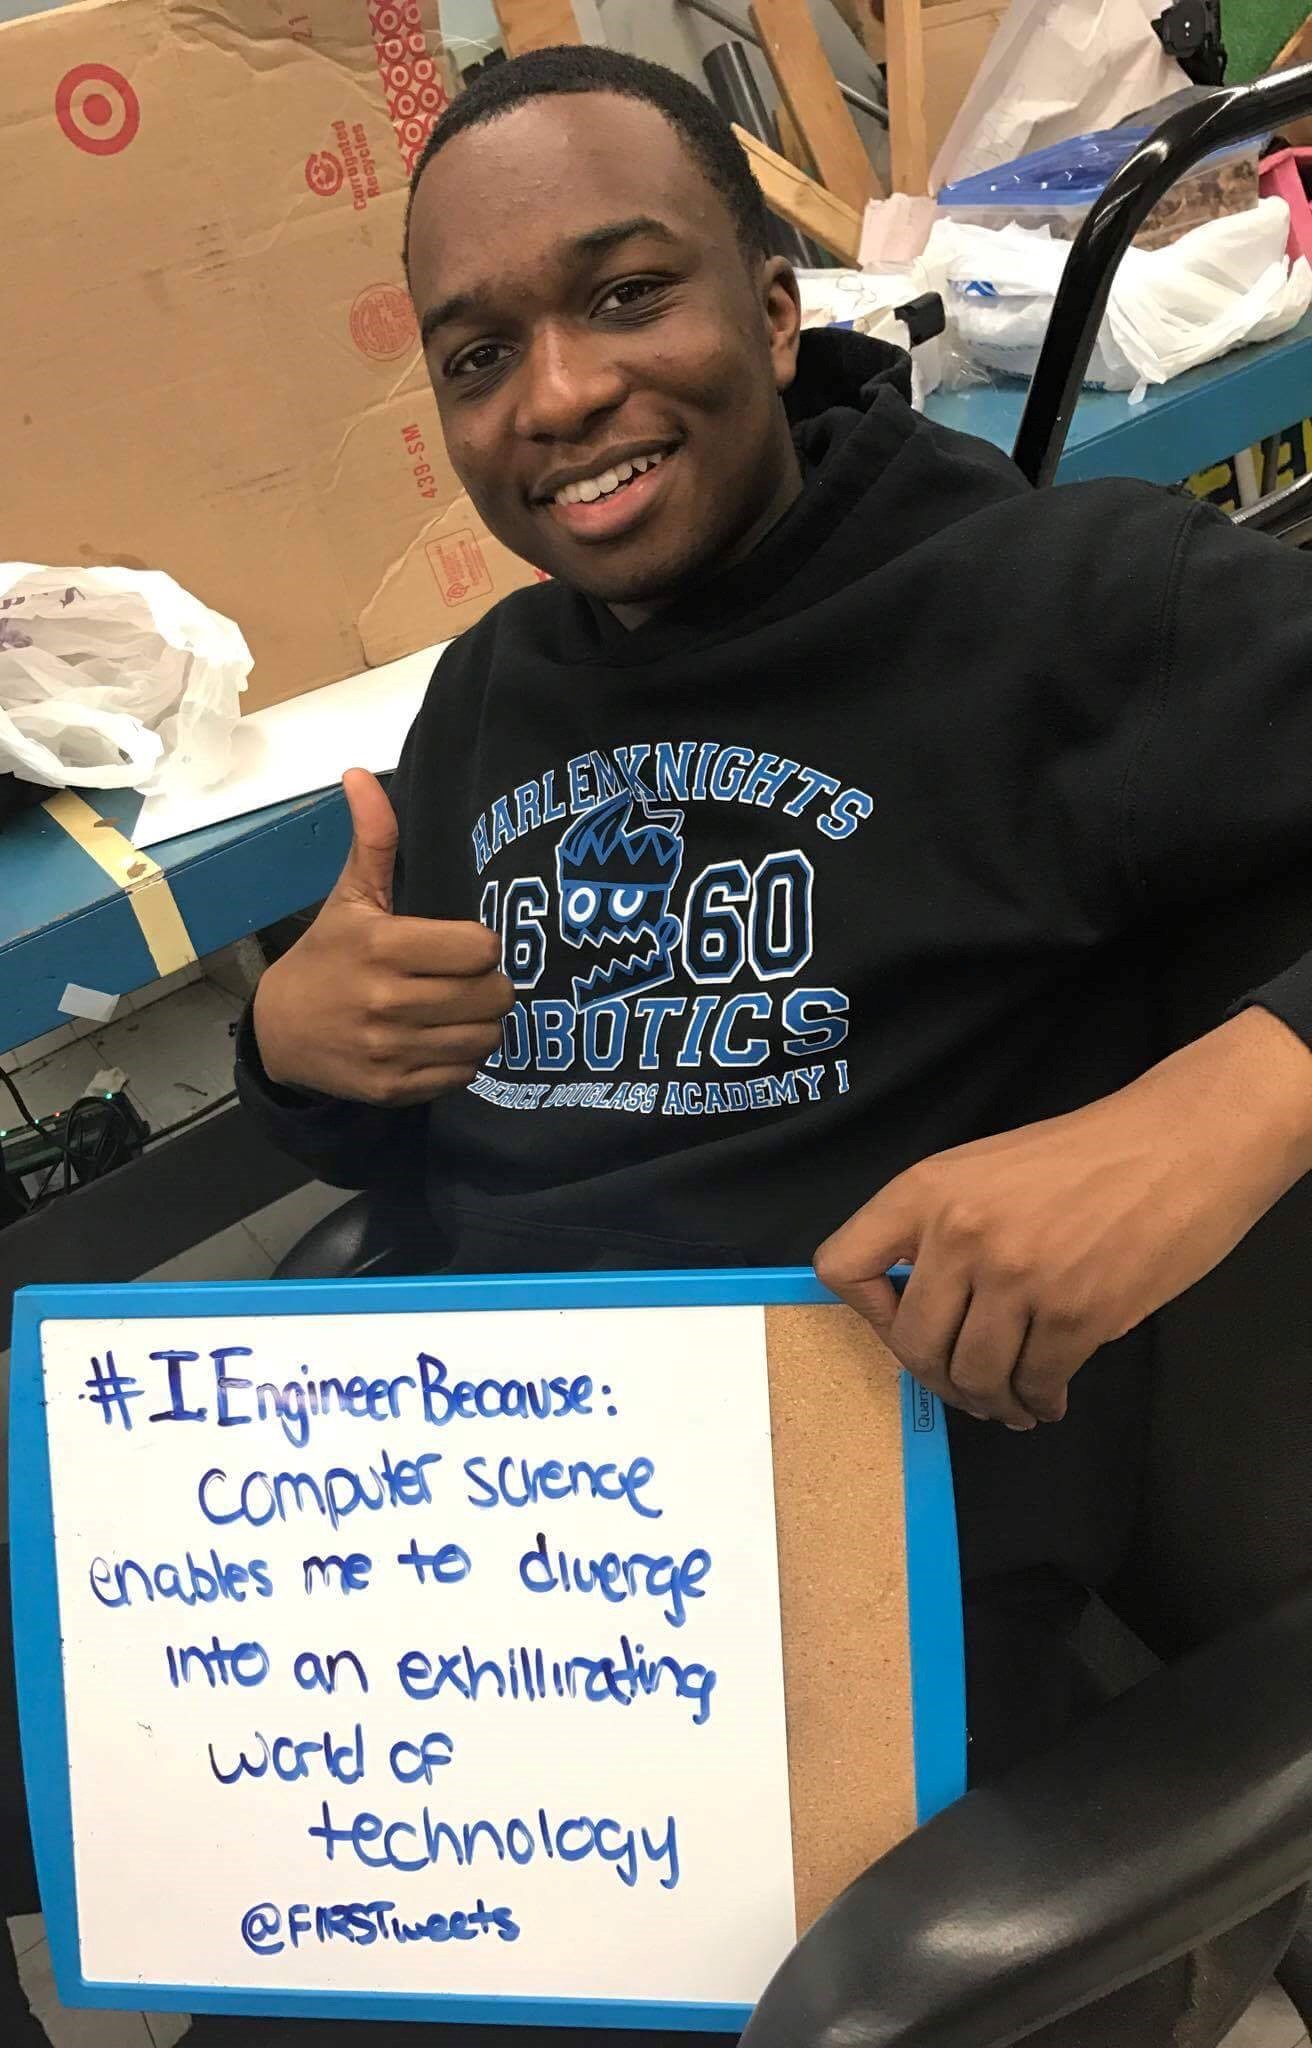 21
Corrugated
Recycles
439-SM
HARLEM KNIGHTS
1660
OBOTICS
DERICK DOUGLASS ACADEMY I
#IEngineerBecause:
computer science
enables me to diverge
into an exhillirating
world of
technology
@FIRSTweets
Quart